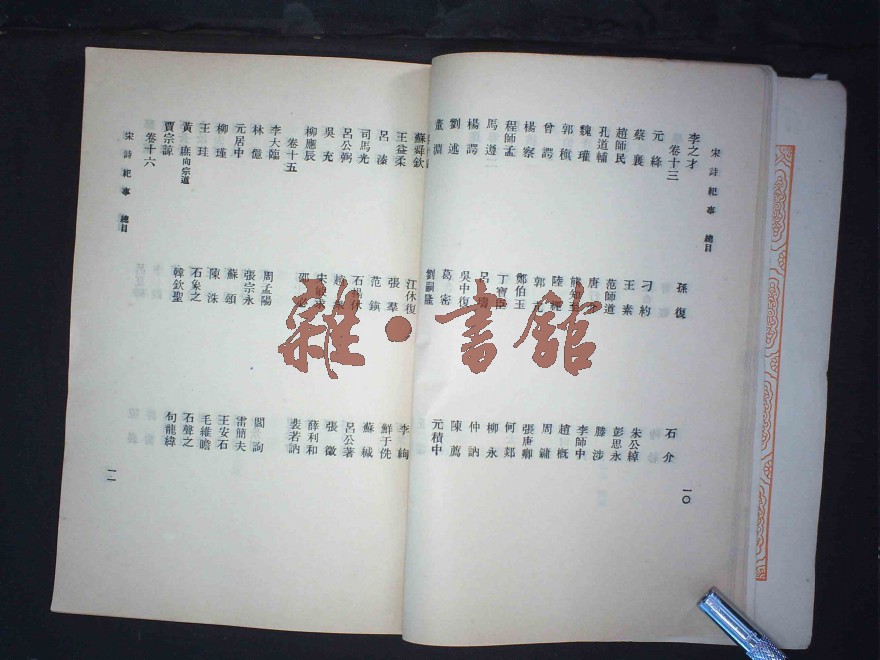 宋詩紀事 總目 一〇
李之才 孫復 石介
卷十三
元絳 刁約 朱公綽
蔡襄 王素 彭思永
趙師民 范師道 滕涉
孔道輔 唐 李師中
魏瓘 趙概
郭稹 陸 周
曾諤 郭 張唐卿
楊察 鄭伯玉 何郯
程師孟 丁寶臣 柳永
馬遵 呂 仲訥
楊諤 吳中復 陳薦
劉述 葛密 元積中
董淵 劉嗣隆
蘇舜欽 江休復 李絢
王益柔 張羣 鮮于侁
呂溱 范鎮 蘇緘
司馬光 石揚休 呂公著
呂公弼 張徵
吳充 宋敏求 薛利和
柳應辰 邵必 裴若訥
卷十五
李大臨 周孟陽 閻詢
林億 張宗永 雷簡夫
元居中 蘇頌 王安石
柳瑾 陳洙 毛維瞻
王珪 石象之 石聲之
黃庶向宗道 韓欽聖 句龍緯
賈宗諒
卷十六
宋詩紀事 總目 一一
雜·書館